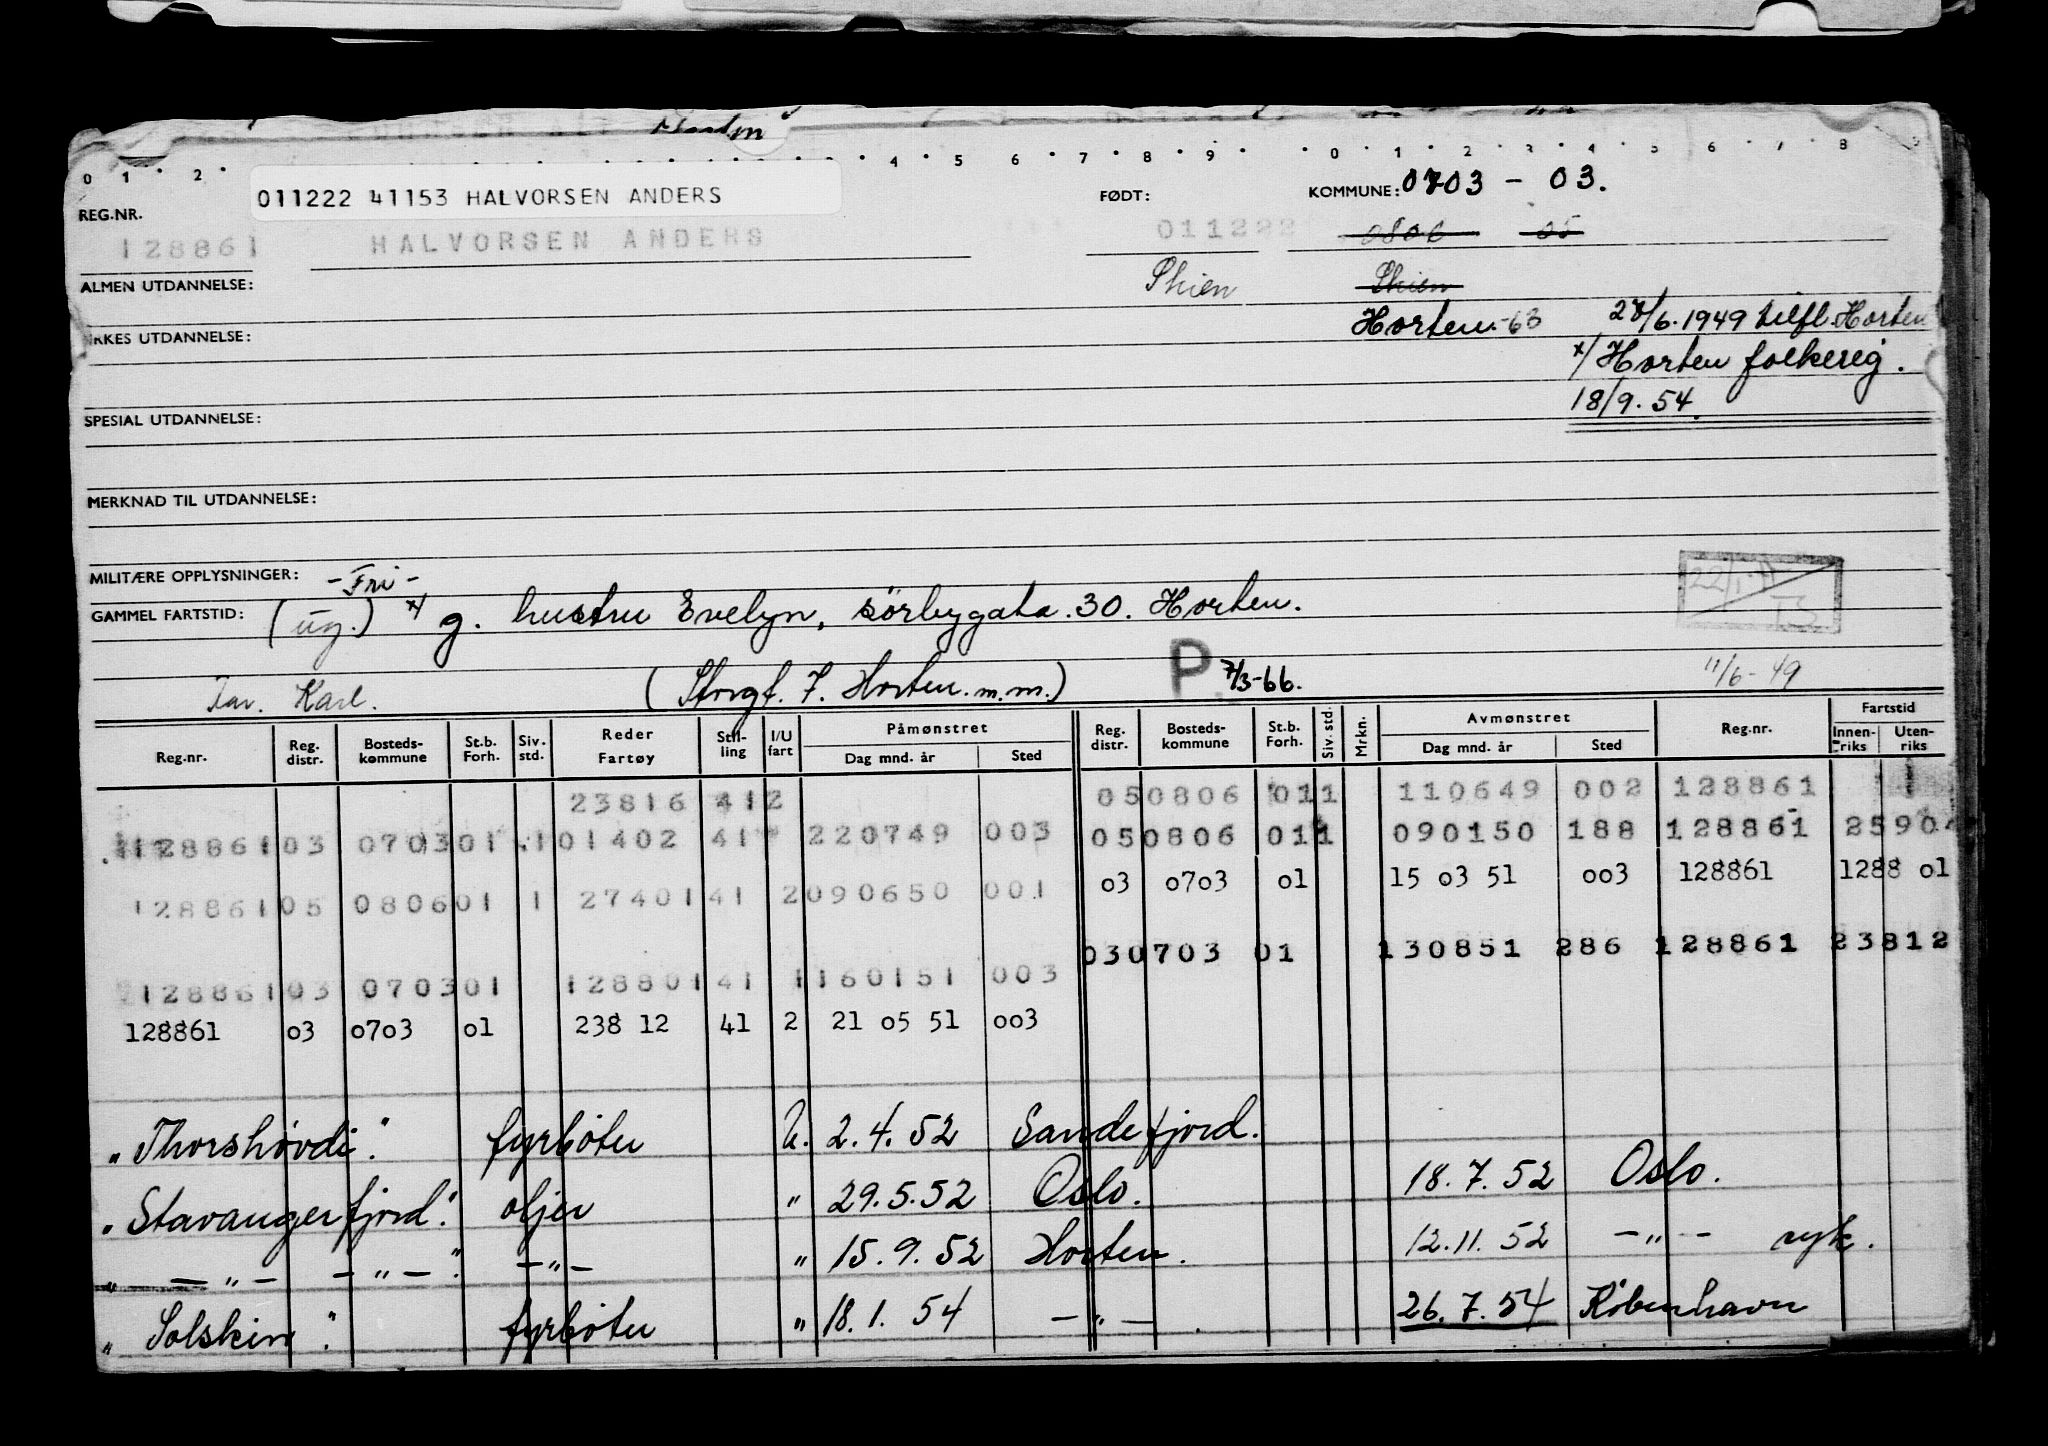 0 1 2 4 5 6 7 8 9 0 1 2 3 4 5 6 7 8
011222 41153 HALVORSEN ANDERS FØDT: KOMMUNE: 0703 - 03.
REG.NR.
128861 HALVORSEN ANDERS 011222 0806 05
ALMEN UTDANNELSE: Skien Skien
Horten.-63 27/6.1949 tilfl. Horten
RKES UTDANNELSE:
x/ Horten folkereg.
18/9.54.
SPESIAL UTDANNELSE:
MERKNAD TIL UTDANNELSE:
MILITÆRE OPPLYSNINGER: -Fri-
GAMMEL FARTSTID: (ug.) x/ g. hustru Evelyn, sörbygata.30. Horten.
Far. Karl. (Storgt. 7. Horten.m.m.) P. 7/3-66. 11/6-49
Reg.nr. Reg. distr. Bosteds-kommune St.b. Forh. Siv. std. Reder Fartøy Stil-ling I/U fart Påmønstret Dag mnd. år Sted Reg. distr. Bosteds-kommune St.b. Forh. Siv. std. Mrkn. Avmønstret Dag mnd. år Sted Reg.nr. Fartstid Innen-riks Uten-riks
23816 412 050806 011 110649 002 128861
128861 03 0703 01 1 01402 41 220749 003 050806 011 090150 188 128861 25904
03 0703 01 15 03 51 003 128861 1288 01
128861 05 0806 01 1 27401 41 2 090650 001
030703 01 130851 286 128861 23812
128861 03 0703 01 12880 1 41 1 160151 003
128861 03 0703 01 238 12 41 2 21 05 51 003
"Thorshøvdi". fyrbøter U. 2.4.52 Sandefjord.
"Stavangerfjord". oljer " 29.5.52 Oslo. 18.7.52 Oslo.
" -"- -"- ". -"- " 15.9.52 Horten. 12.11.52 -"- syk.
"Solskin". fyrbøter " 18.1.54 -"- . 26.7.54 København